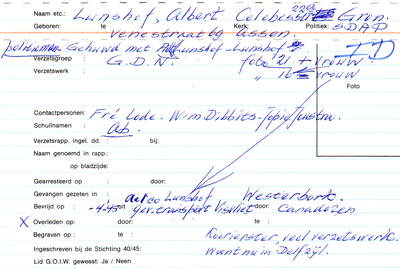 Naam etc.: Lunshof, Albert Celebesstr 22a Gron.
Geboren: te Kerk: Politiek: SDAP
Venestraat 69 Assen.
politieman. Gehuwd met Lunshof-Lunshof
Verzetsgroep : G.D.N. foto 21 + vrouw
Verzetswerk : " 16 vrouw
Foto
Contactpersonen: Fré Lode - Wim Dibbits - Jopie
Schuilnamen : Ab.
Verzetsrapp. ingel. dd. : bij:
Naam genoemd in rapp.:
op bladzijde:
Gearresteerd op : door:
Gevangen gezeten in : Lunshof Westerbork.
Bevrijd op : -4-45 uit gev. transport Visvliet door: Canadezen
X Overleden op : door: te :
Begraven op : te : Koerierster, veel verzetswerk.
Ingeschreven bij de Stichting 40/45: woont nu in Delfzijl.
Lid G.O.I.W. geweest: Ja / Neen